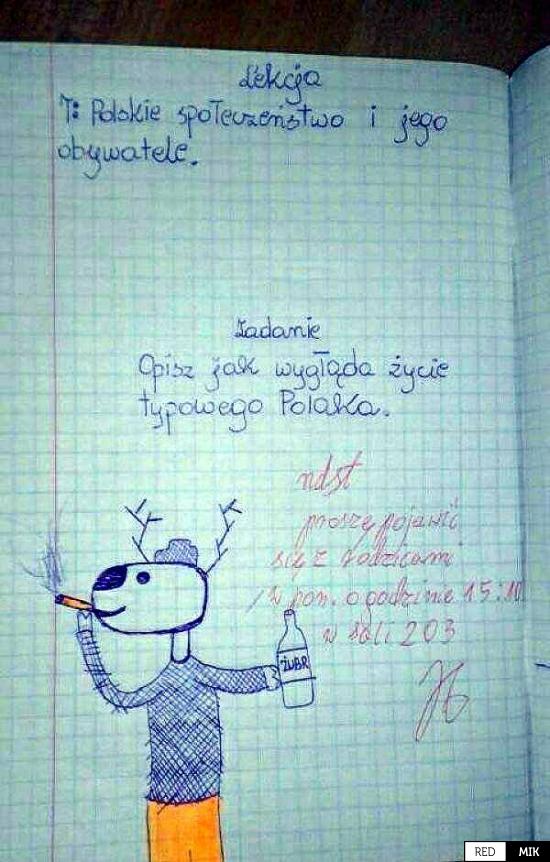 Lekcja
T: Polskie społeczeństwo i jego
obywatele.
Zadanie
Opisz jak wygląda życie
typowego Polaka.
ndst
proszę pojawić
się z rodzicami
w pon. o godzinie 15:10
w sali 203
ŻUBR
RED MIK